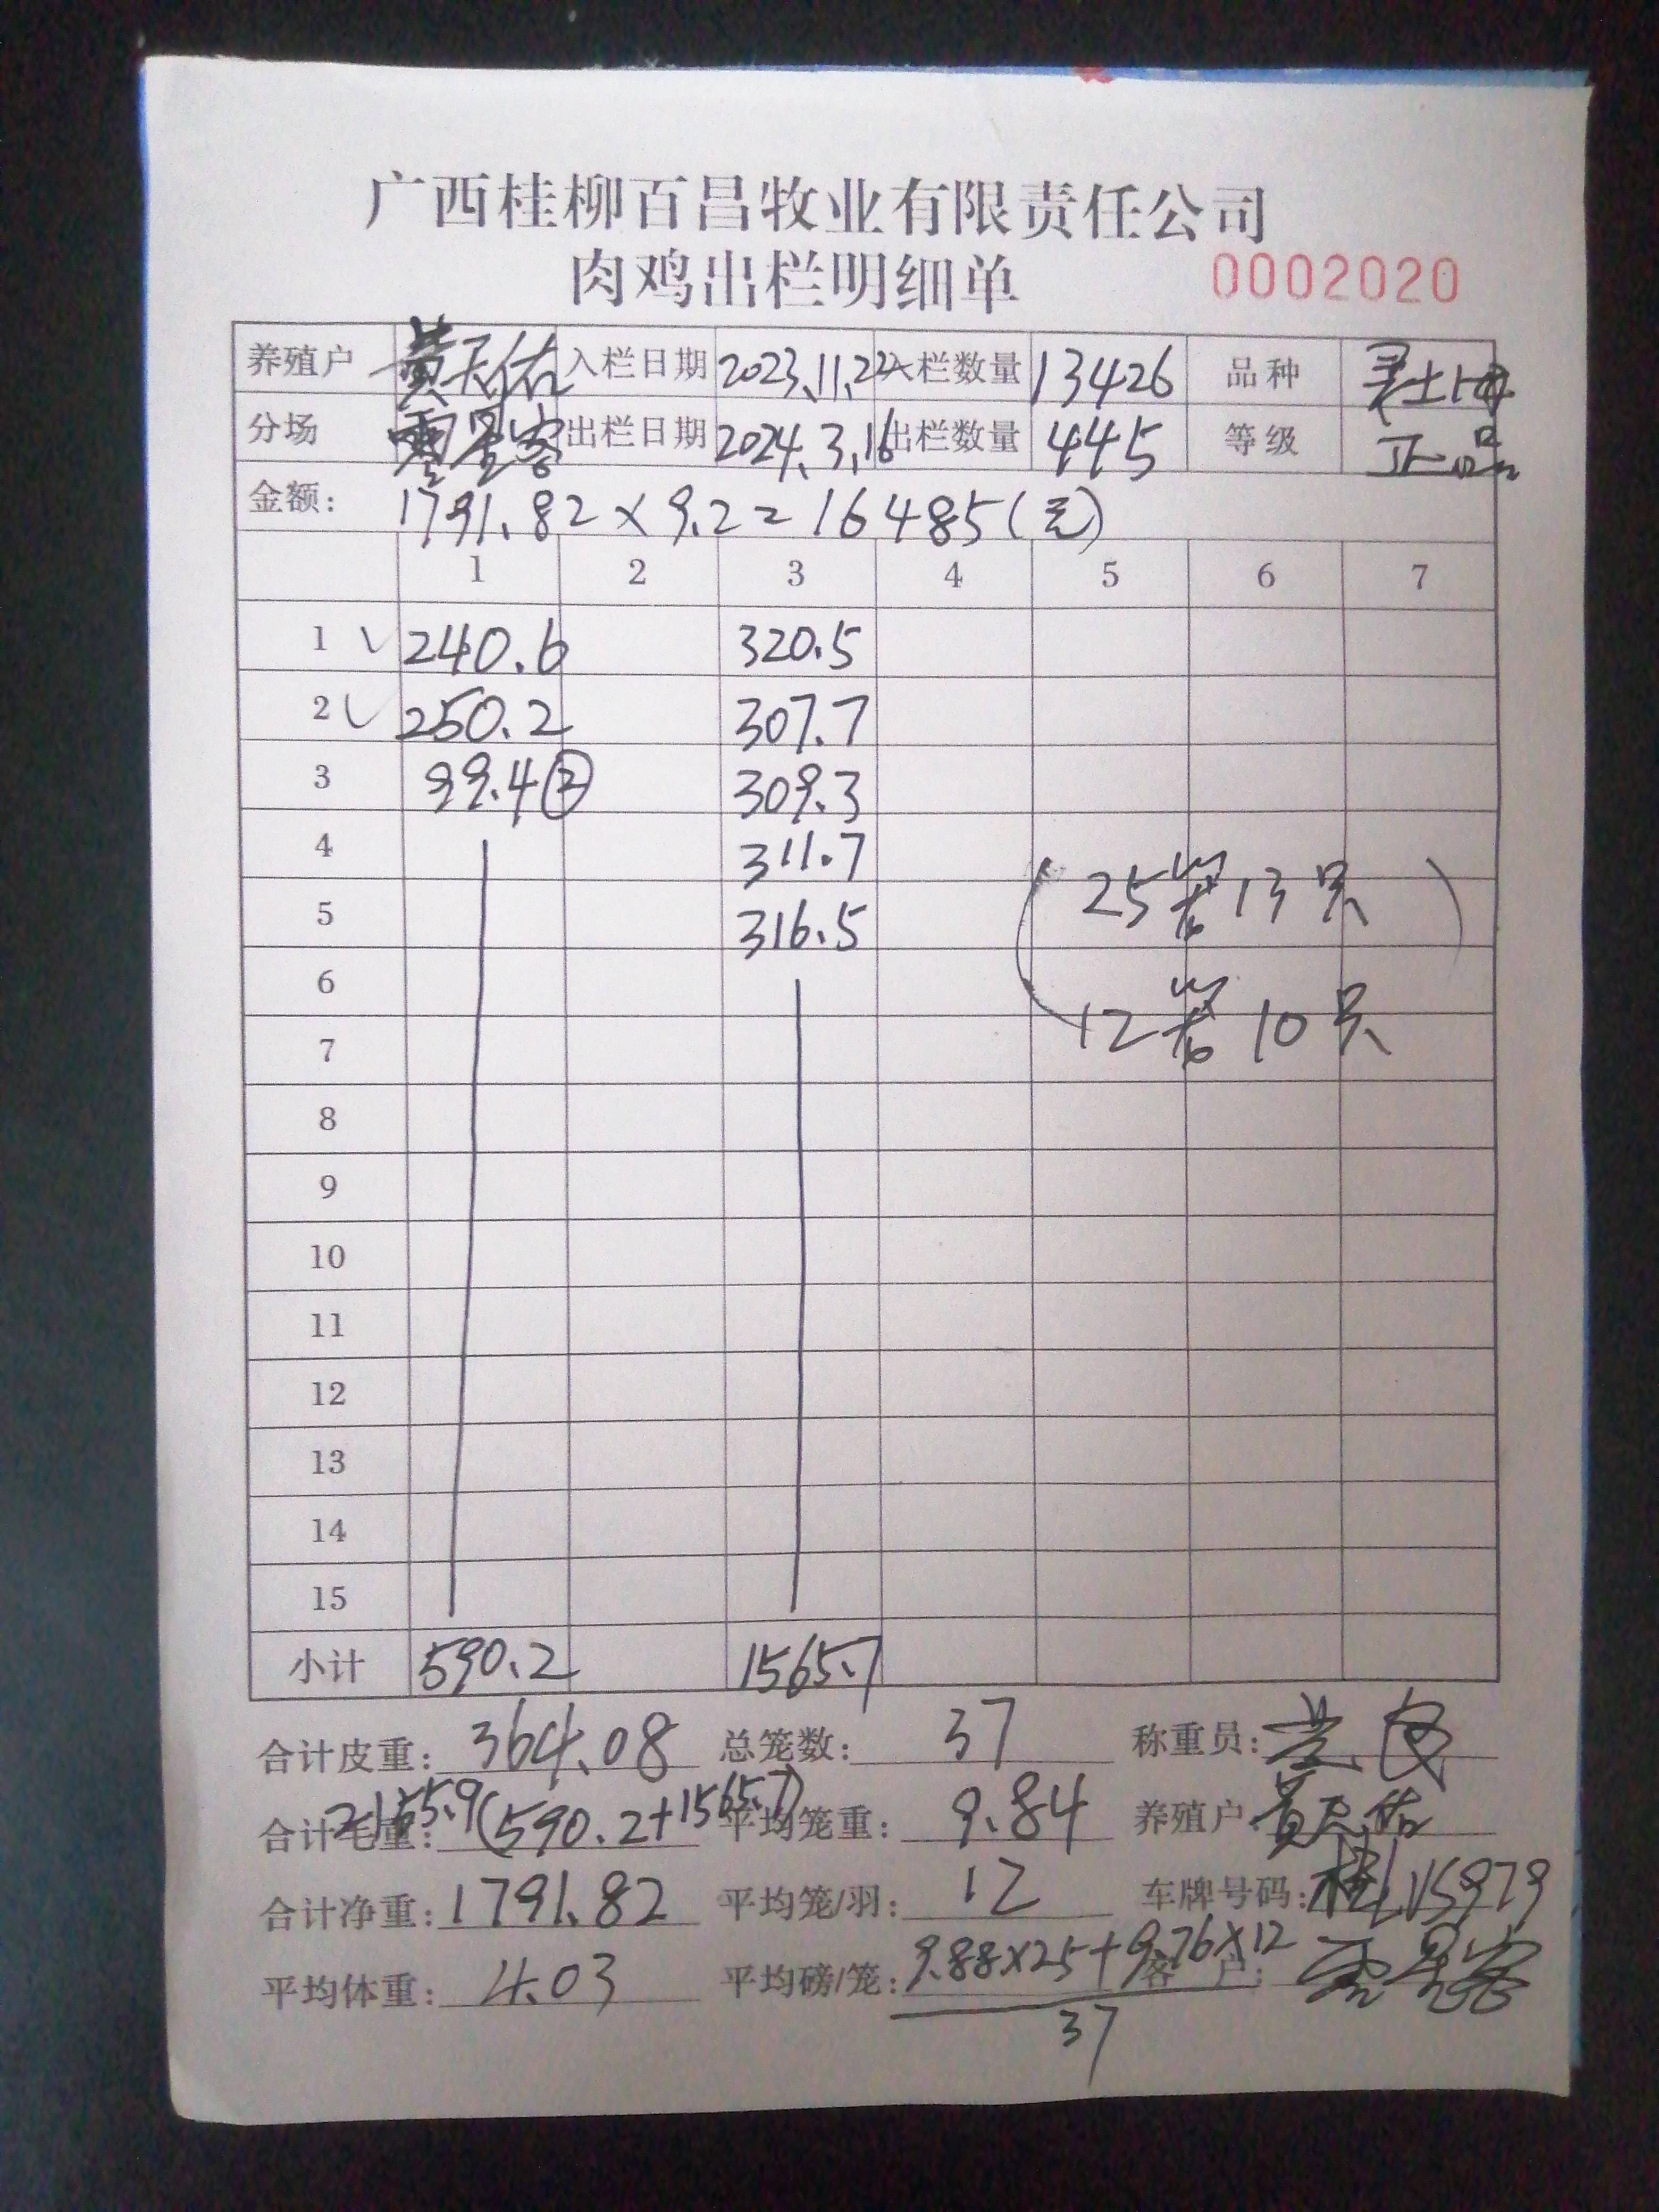 广西桂柳百昌牧业有限责任公司
肉鸡出栏明细单 0002020
养殖户 黄天佑 入栏日期 2023.11.22 入栏数量 13426 品种
分场 出栏日期 2024.3.16 出栏数量 445 等级 正品
金额: 1791.82×9.2=16485(元)
1 2 3 4 5 6 7
1 240.6 320.5
2 250.2 307.7
3 99.4② 309.3
4 311.7
5 316.5 25 13只
6
7 12 10只
8
9
10
11
12
13
14
15
小计 590.2 1565.7
合计皮重: 364.08 总笼数: 37 称重员:
合计毛重: 2155.9(590.2+1565.7) 平均笼重: 9.84 养殖户 黄天佑
合计净重: 1791.82 平均笼/羽: 12 车牌号码: 15979
平均体重: 4.03 平均磅/笼: 9.88×25+9.76×12 客户:
37